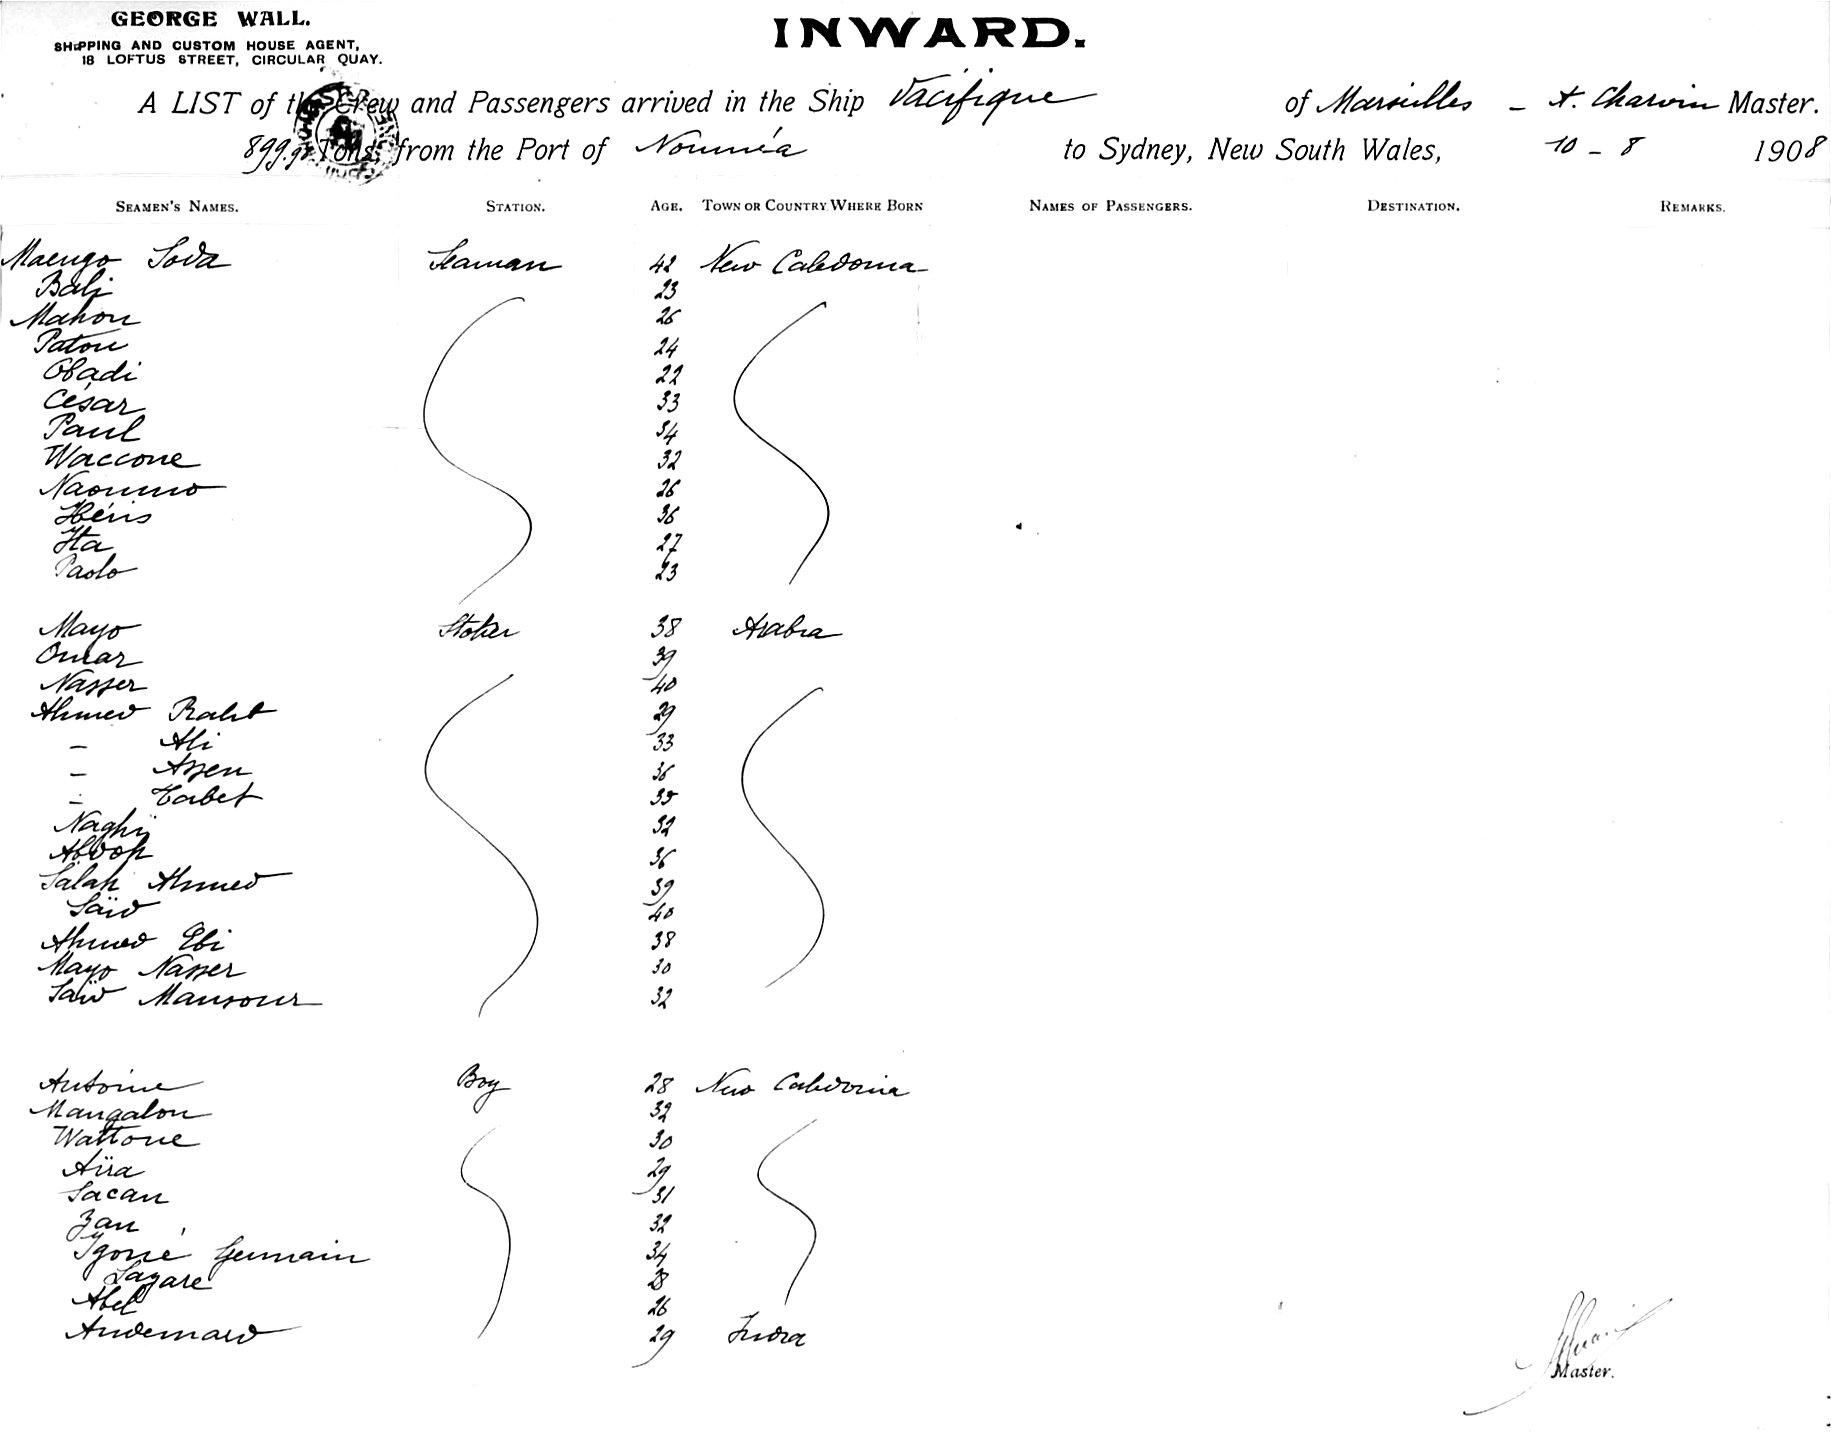 GEORGE WALL.
SHIPPING AND CUSTOM HOUSE AGENT,
18 LOFTUS STREET, CIRCULAR QUAY.
INWARD.
A LIST of the Crew and Passengers arrived in the Ship Pacifique of Marseilles - A. Charvin Master.
899 Tons, from the Port of Nouméa to Sydney, New South Wales, 10 - 8 1908
SEAMEN'S NAMES. STATION. AGE. TOWN OR COUNTRY WHERE BORN NAMES OF PASSENGERS. DESTINATION. REMARKS.
Maengo Soda Seaman 42 New Caledonia
Bali 23
Mahou 26
Patou 24
Obadi 22
César 33
Paul 34
Waccone 32
Naoumo 26
Héris 36
Ita 27
Paolo 23
Mayo Stoker 38 Arabia
Omar 39
Nasser 40
Ahmed 29
- Ali 33
- Assen 36
- Tabet 35
Naghi 32
36
Salah Ahmed 39
Saïd 40
Ahmed Ebi 38
Mayo Nasser 30
Saïd Mansour 32
Antoine Boy 28 New Caledonia
Mangalou 32
Wattone 30
Aïra 29
Sacan 31
Zan 32
Igoné Germain 34
Lazare 28
Abel 26
Andemard 29 India
Master.